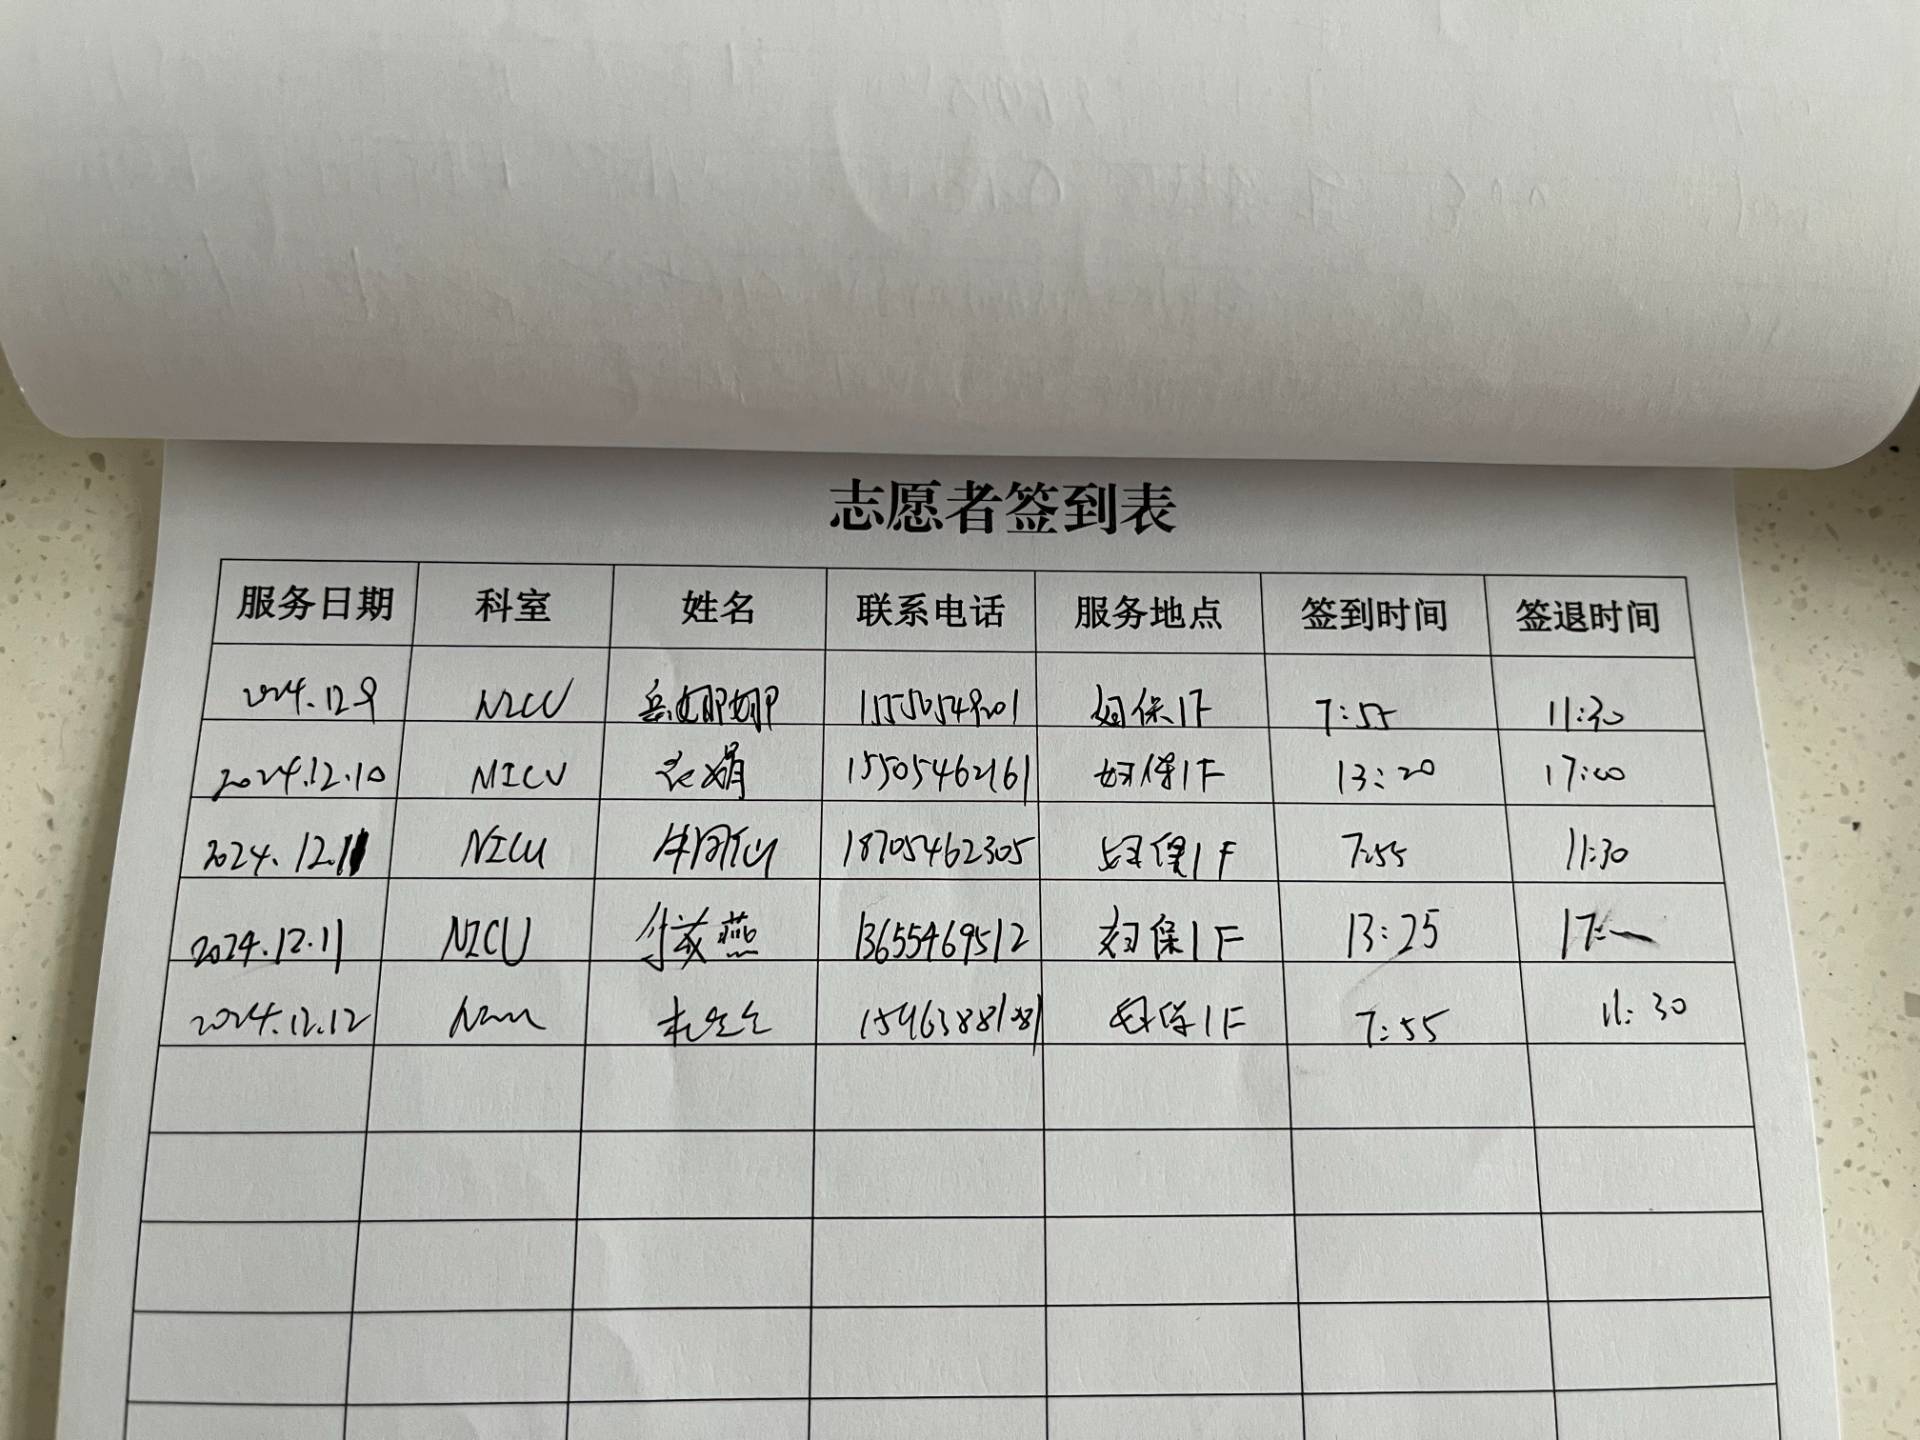 志愿者签到表
服务日期 科室 姓名 联系电话 服务地点 签到时间 签退时间
2024.12.9 NICU 岳娜娜 妇保1F 7:55 11:30
2024.12.10 NICU 衣娟 15505462161 妇保1F 13:20 17:00
2024.12.11 NICU 18705462305 妇保1F 7:55 11:30
2024.12.11 NICU 燕 13655469512 妇保1F 13:25 17:
2024.12.12 NICU 妇保1F 7:55 11:30